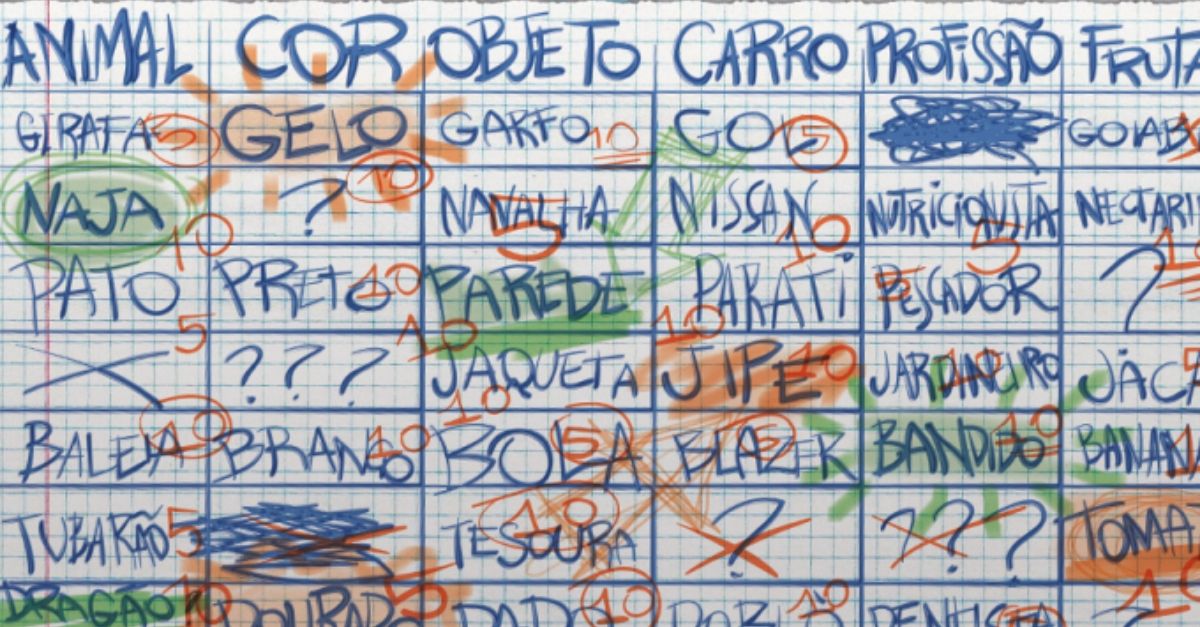 ANIMAL COR OBJETO CARRO PROFISSÃO FRUTA
GIRAFA 5 GELO 10 GARFO 10 GOL 5 GOIAB
NAJA 10 ? NAVALHA 5 NISSAN 10 NUTRICIONISTA 5 NECTARI
PATO 5 PRETO 10 PAREDE 10 PARATI 10 PESCADOR 5 ? 10
X ? ? ? JAQUETA 10 JIPE 10 JARDINEIRO 10 JACA 5
BALEIA 10 BRANCO 10 BOLA 5 BLAZER 5 BANDIDO 10 BANANA
TUBARÃO 5 TESOURA 10 ? ? ? ? TOMAT
DRAGÃO 10 DOURADO 5 DADO 10 10 DENTISTA ? 10